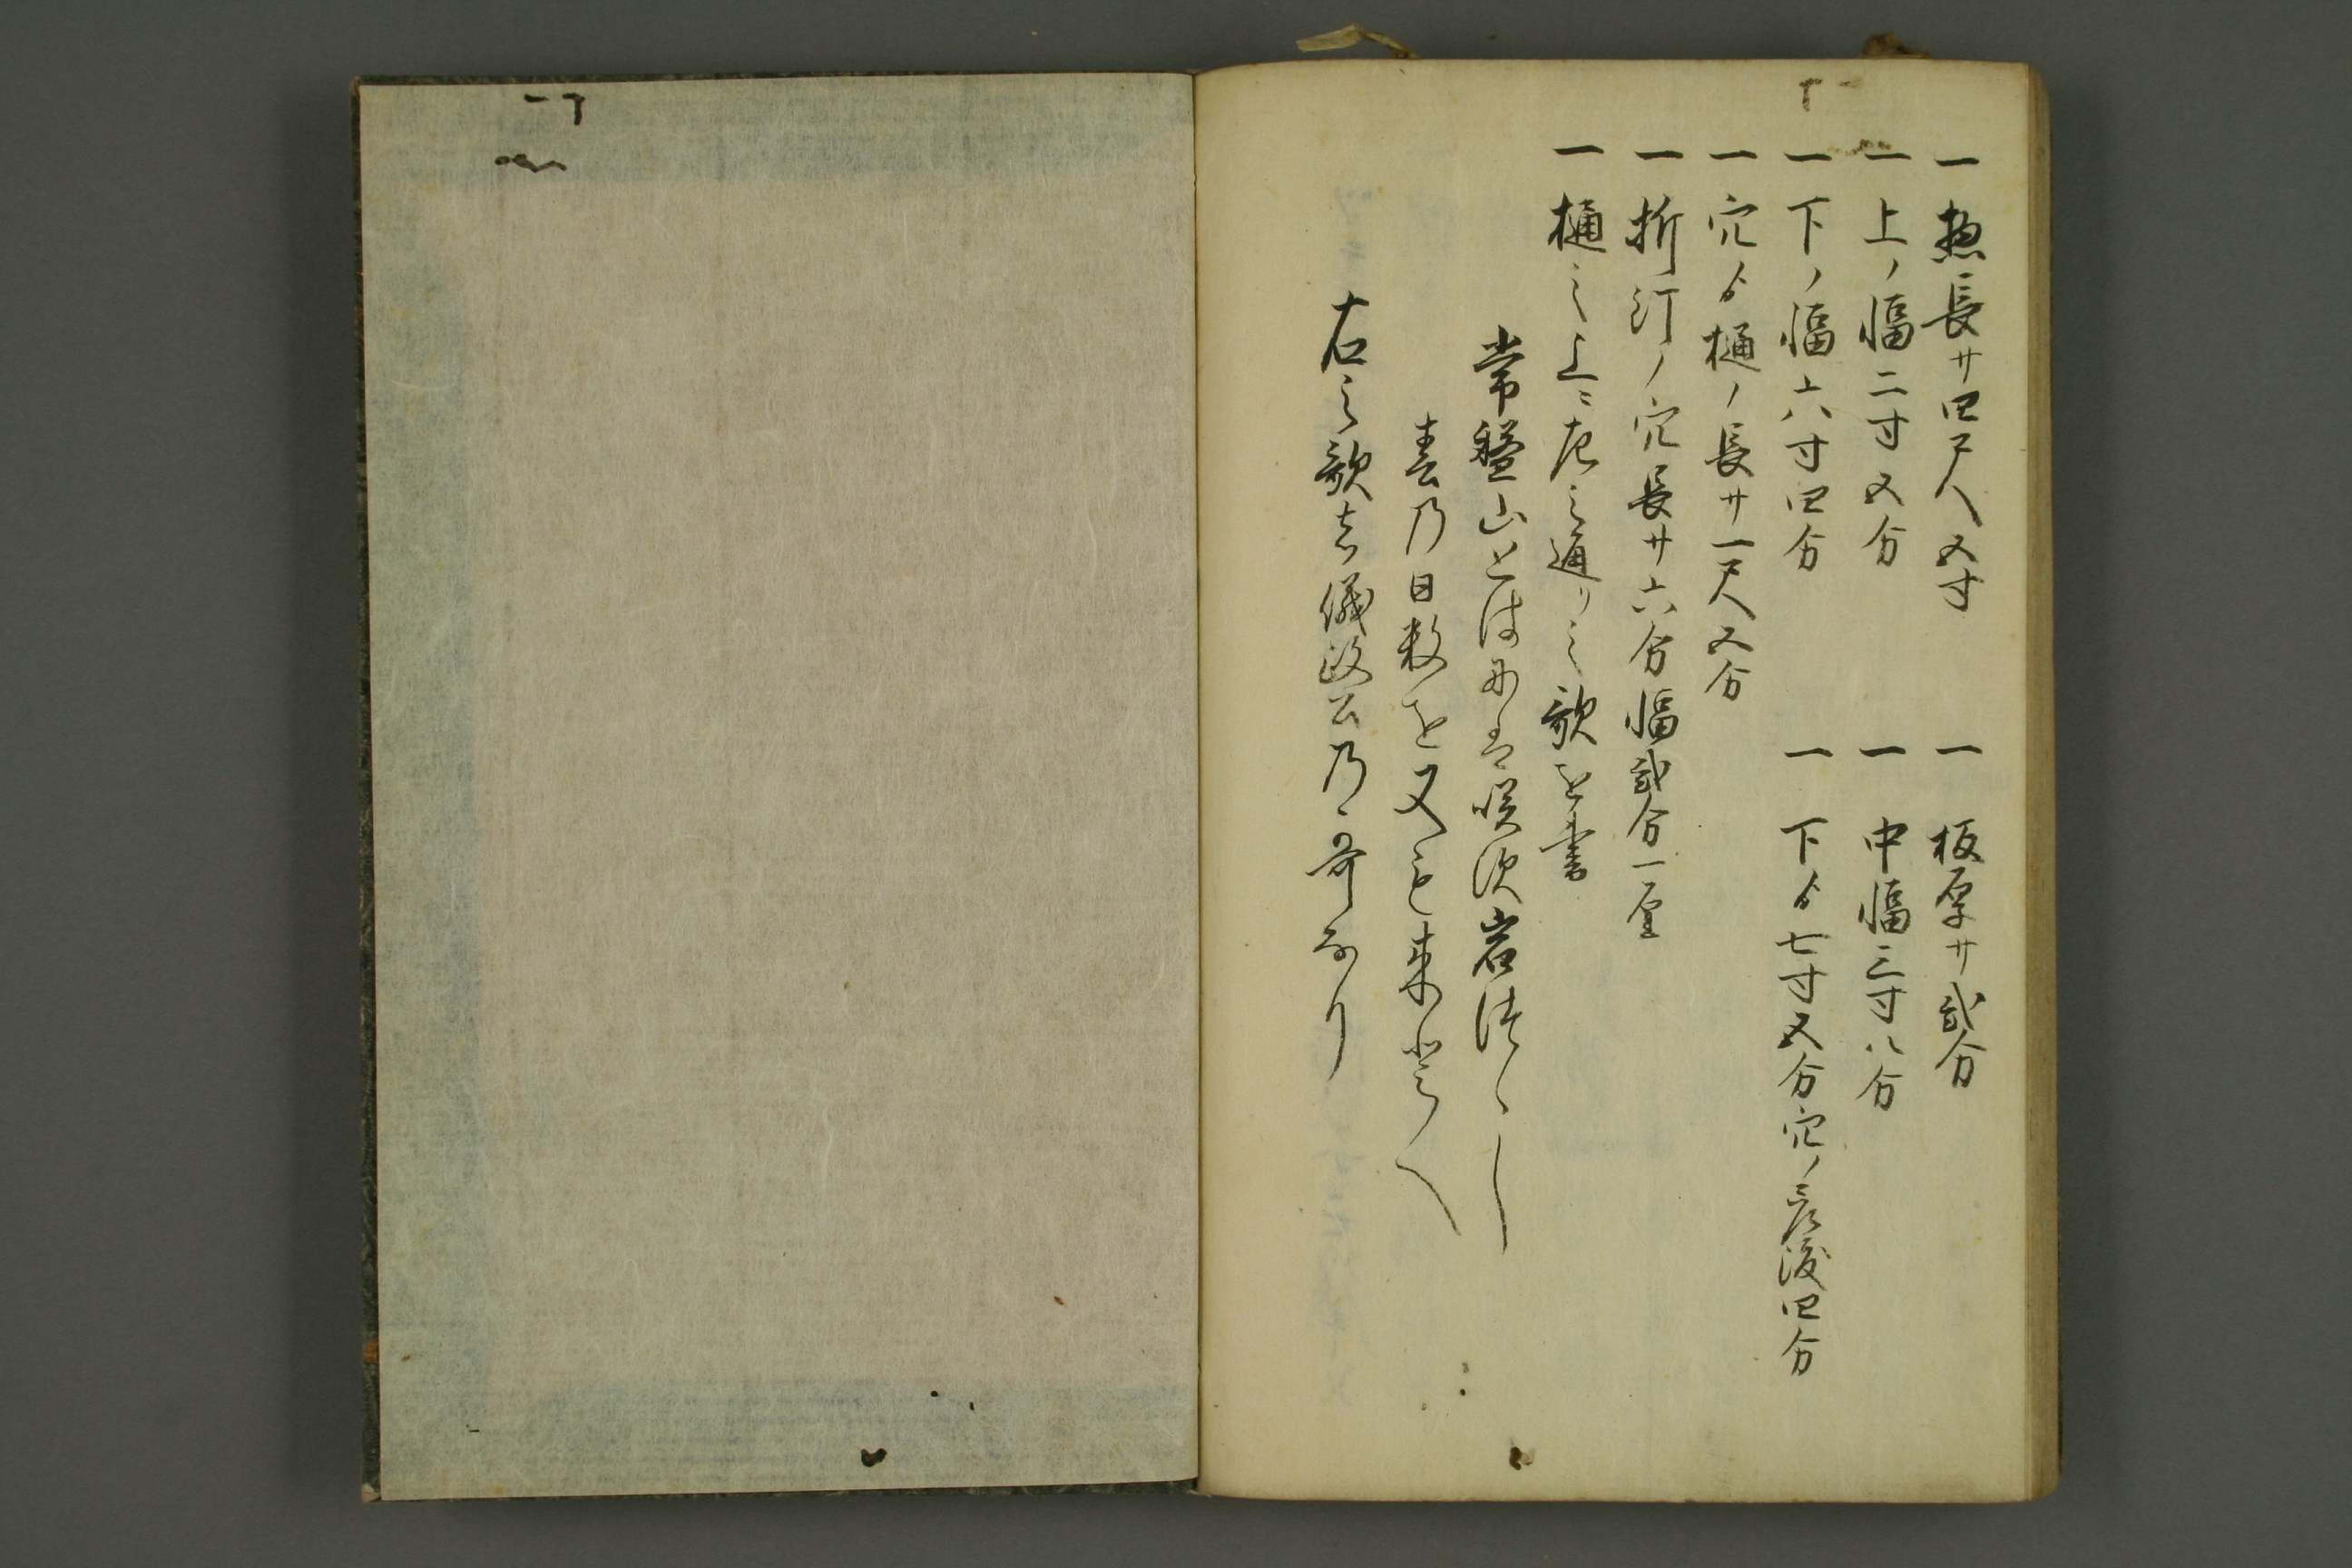 一 惣長サ四尺五寸 一 板厚サ弐分
一 上ノ幅二寸五分 一 中幅三寸八分
一 下ノ幅六寸四分 一 下ゟ七寸五分穴ノ渡四分
一 穴ゟ樋ノ長サ一尺五分
一 折釘ノ穴長サ六分幅弐分一厘
一 樋之上ニ左之通リ之歌を書
常盤山とは咲須岩津ゝし
春乃日数を又も来
右之歌者儀政公乃哥なり